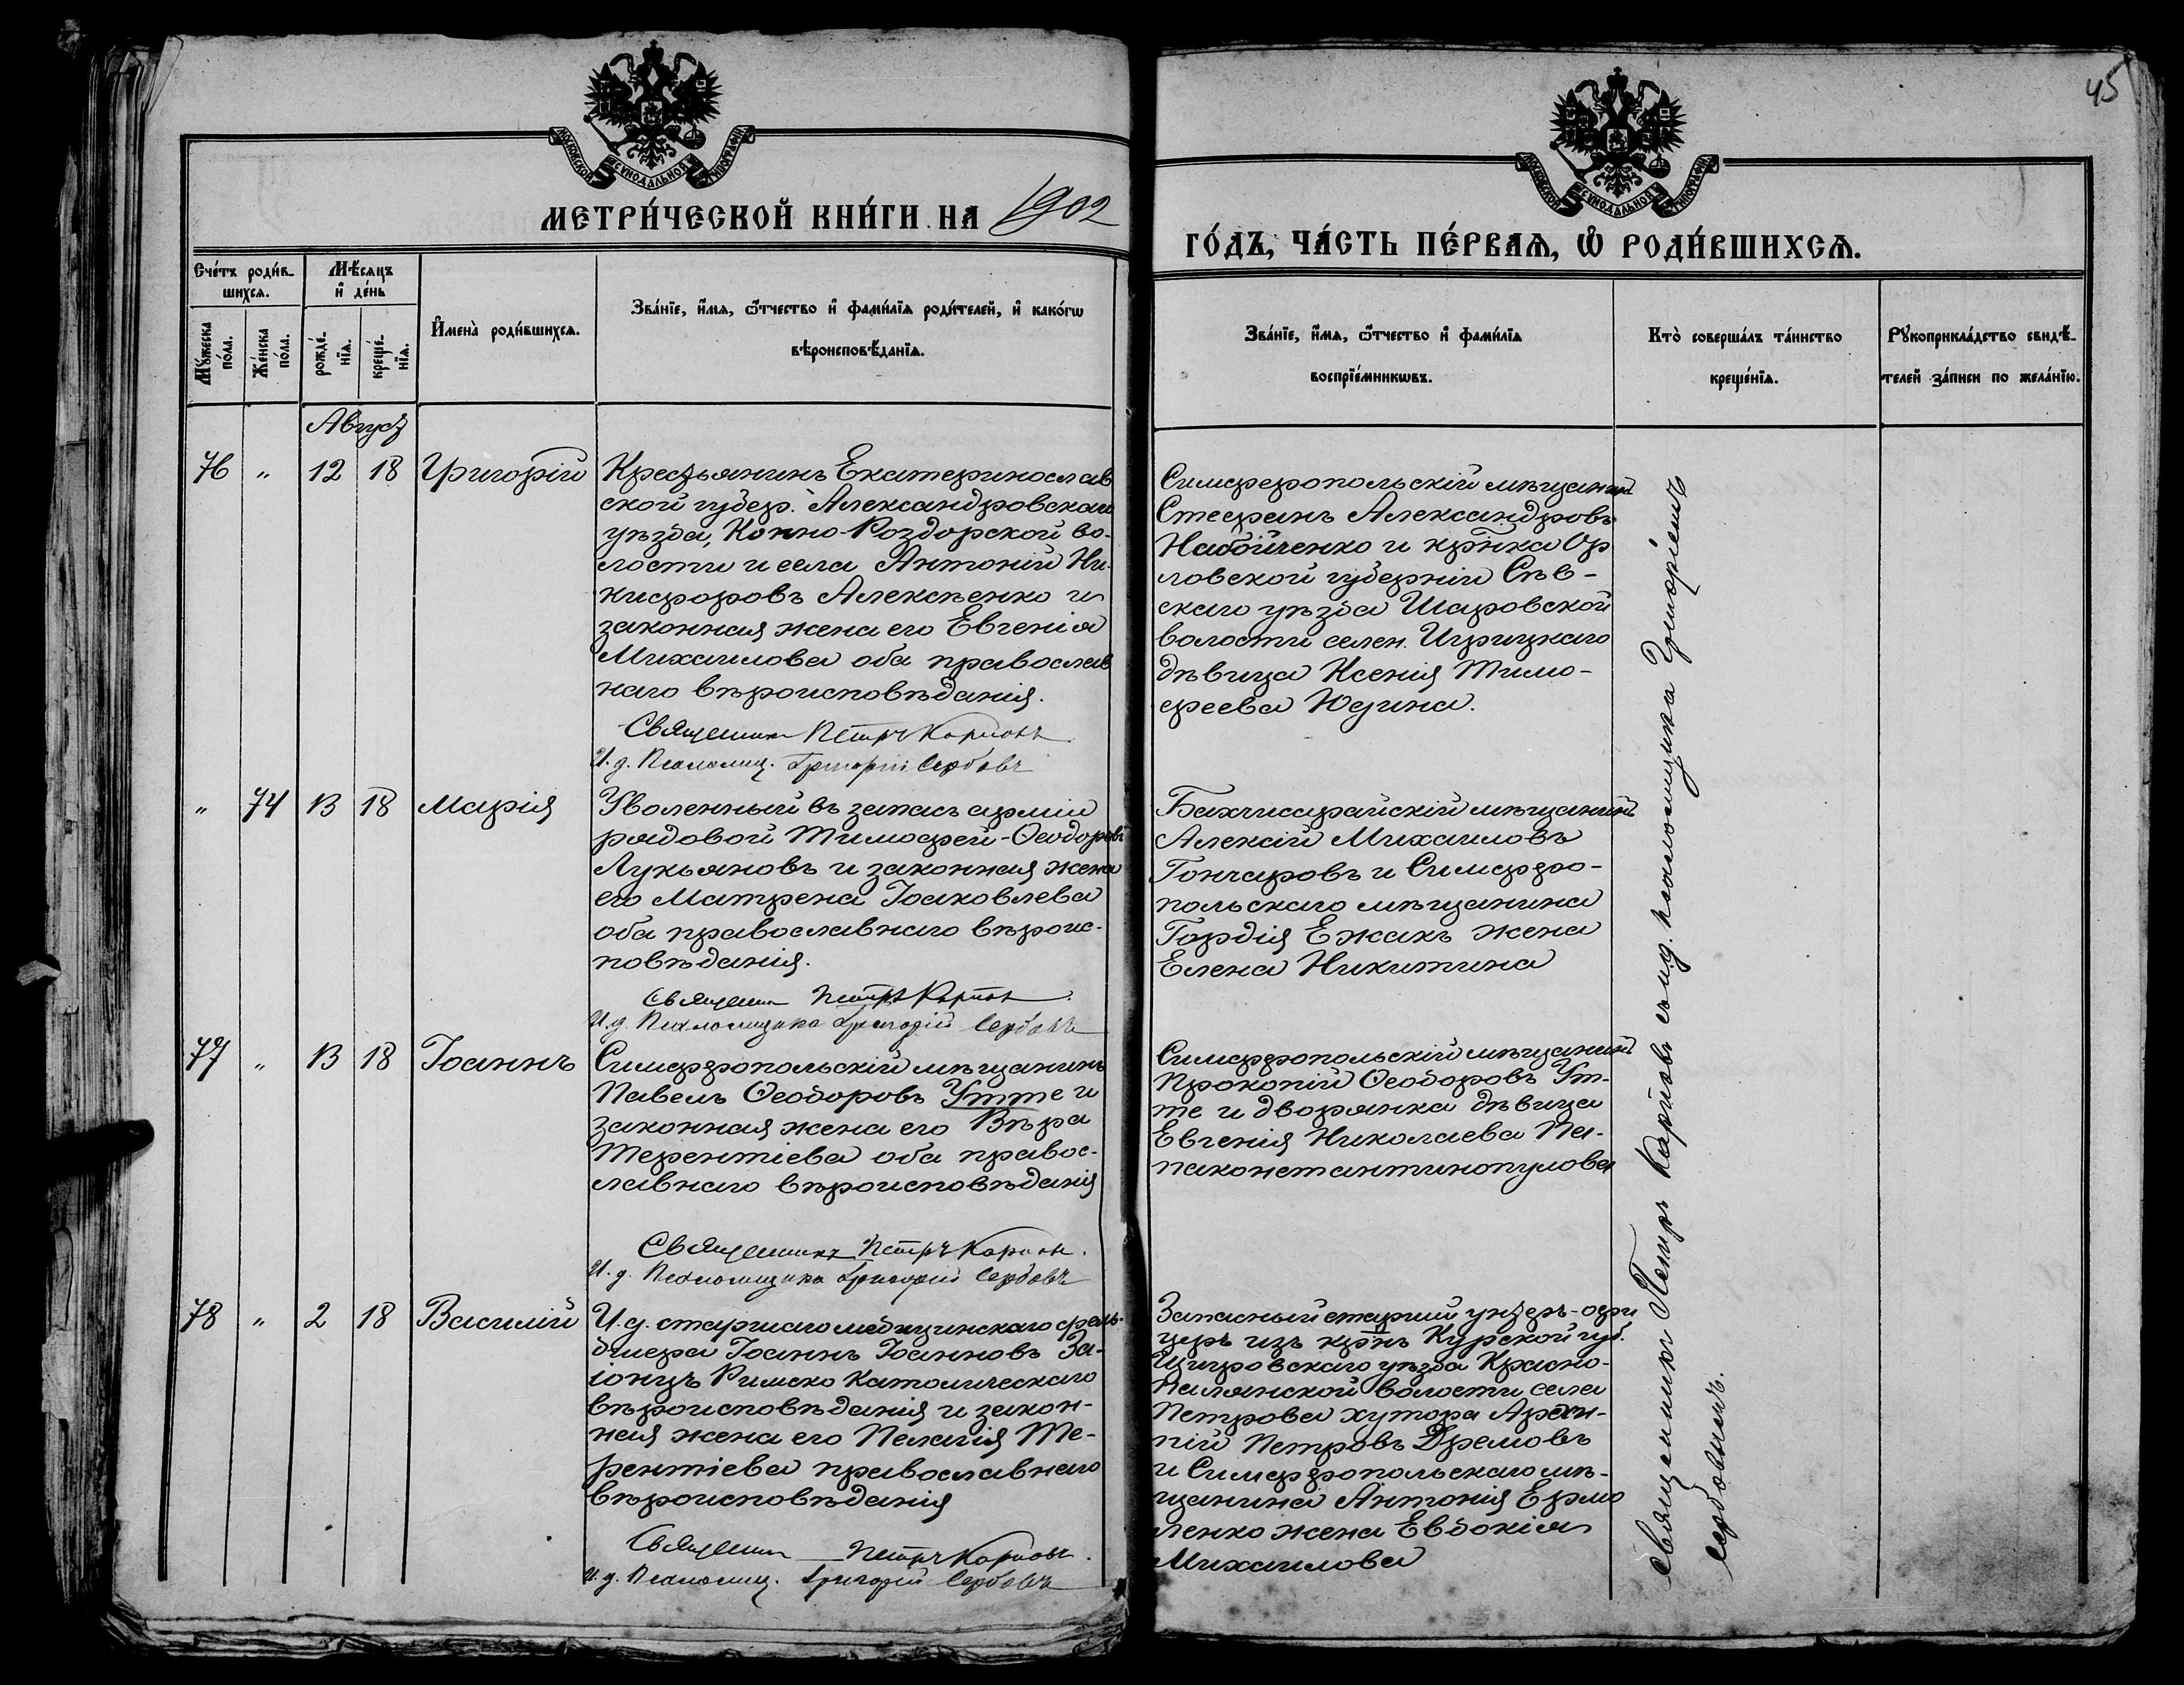 45
МОСКОВСКОЙ СѴНОДАЛЬНОЙ ТИПОГРАФІИ
МОСКОВСКОЙ СѴНОДАЛЬНОЙ ТИПОГРАФІИ
МЕТРИ́ЧЕСКОЙ КНИ́ГИ НА 1902
ГО́ДЪ, ЧА́СТЬ ПЕ́РВАѦ, Ѽ РОДИ́ВШИХСѦ.
Сче́тъ роди́в-
шихсѧ.
Мꙋжеска
по́ла.
Же́нска
по́ла.
Мѣ́сѧцъ
и҆ де́нь
рожде́-
нїѧ.
креще́-
нїѧ.
И҆мена̀ роди́вшихсѧ.
Зва́нїе, и҆́мѧ, ѻ҆́тчество и҆ фами́лїѧ роди́телей, и҆ како́гѡ
вѣроисповѣ́данїѧ.
Зва́нїе, и҆́мѧ, ѻ҆́тчество и҆ фами́лїѧ
воспрїе́мникѡвъ.
Кто̀ соверша́лъ та́инство
креще́нїѧ.
Рꙋкоприкла́дство свидѣ́-
телей за́писи по жела́нїю.
Август
76 " 12 18 Григорій
Крестьянинъ Екатеринослав
ской губер. Александровскаго
уѣзда, Конно-Роздорской во-
лости и села Антоній Ни-
кифоровъ Алексѣенко и
законная жена его Евгенія
Михаилова оба православ
наго вѣроисповѣданія.
Священникъ Петръ Карповъ
И. д. Псаломщ. Григорій Сербовъ
Симферопольскій мѣщанинъ
Стефанъ Александровъ
Набойченко и кр̃нка Ор
ловской губерніи Сѣв-
скаго уѣзда Шаровской
волости селен. Игрицкаго
дѣвица Ксенія Тимо-
феева Юдина.
" 74 13 18 Марія
Уволенный въ запасъ арміи
рядовой Тимофей Ѳеодоровъ
Лукьяновъ и законная жена
его Матрена Іаковлева
оба православнаго вѣроис-
повѣданія.
Священник Петръ Карповъ
И. д. Псаломщика Григорій Сербовъ
Бахчисарайскій мѣщанинъ
Алексій Михаиловъ
Гончаровъ и Симферо-
польскаго мѣщанина
Гордія Ежакъ жена
Елена Никитина
77 " 13 18 Іоаннъ
Симферопольскій мѣщанинъ
Павелъ Ѳеодоровъ Утте и
законная жена его Вѣра
Терентіева оба правос-
лавнаго вѣроисповѣданія
Священникъ Петръ Карповъ.
И. д. Псаломщика Григорій Сербовъ
Симферопольскій мѣщанинъ
Прокопій Ѳеодоровъ Ут-
те и дворянка дѣвица
Евгенія Николаева Па-
паконстантинопулова
78 " 2 18 Василій
И. д. старшаго медицинскаго фель-
дшера Іоаннъ Іоанновъ За-
іонцъ Римско Католическаго
вѣроисповѣданія и закон-
ная жена его Пелагія Те-
рентіева православнаго
вѣроисповѣданія
Священник Петръ Карповъ.
И. д. Псаломщ. Григорій Сербовъ
Запасный старшій унтеръ-офи
церъ изъ кр̃нъ Курской губ.
Щигровскаго уѣзда Красно-
Полянской волости села
Петрова хутора Архи-
пій Петровъ Дремовъ
и Симферопольскаго мѣ-
щанина Антонія Ермо
ленко жена Евдокія
Михаилова
Священникъ Петръ Карповъ съ и. д. псаломщика Григоріемъ
Сербовымъ.